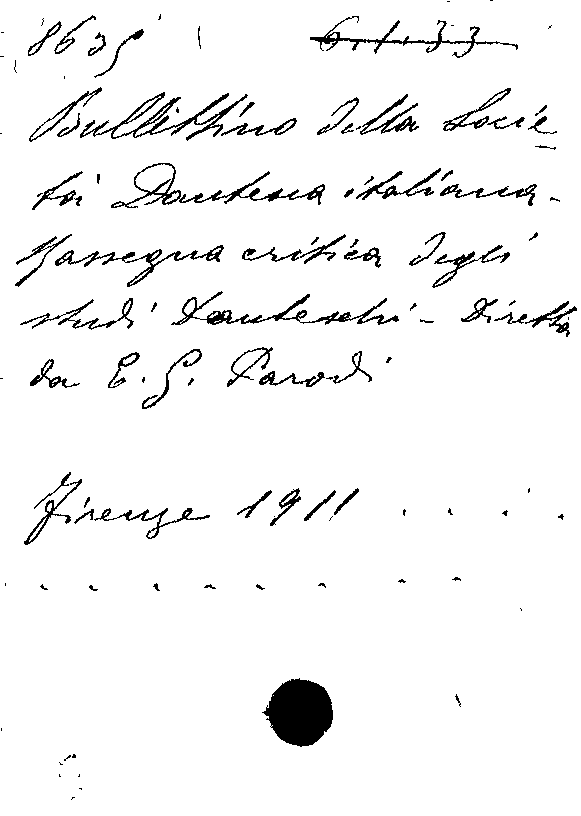 8635 6.1.33
Bullettino della Socie
tà Dantesca italiana.
Rassegna critica degli
studi danteschi - Diretta
da E. G. Parodi
Firenze 1911 . . . .
. . . . . . . .